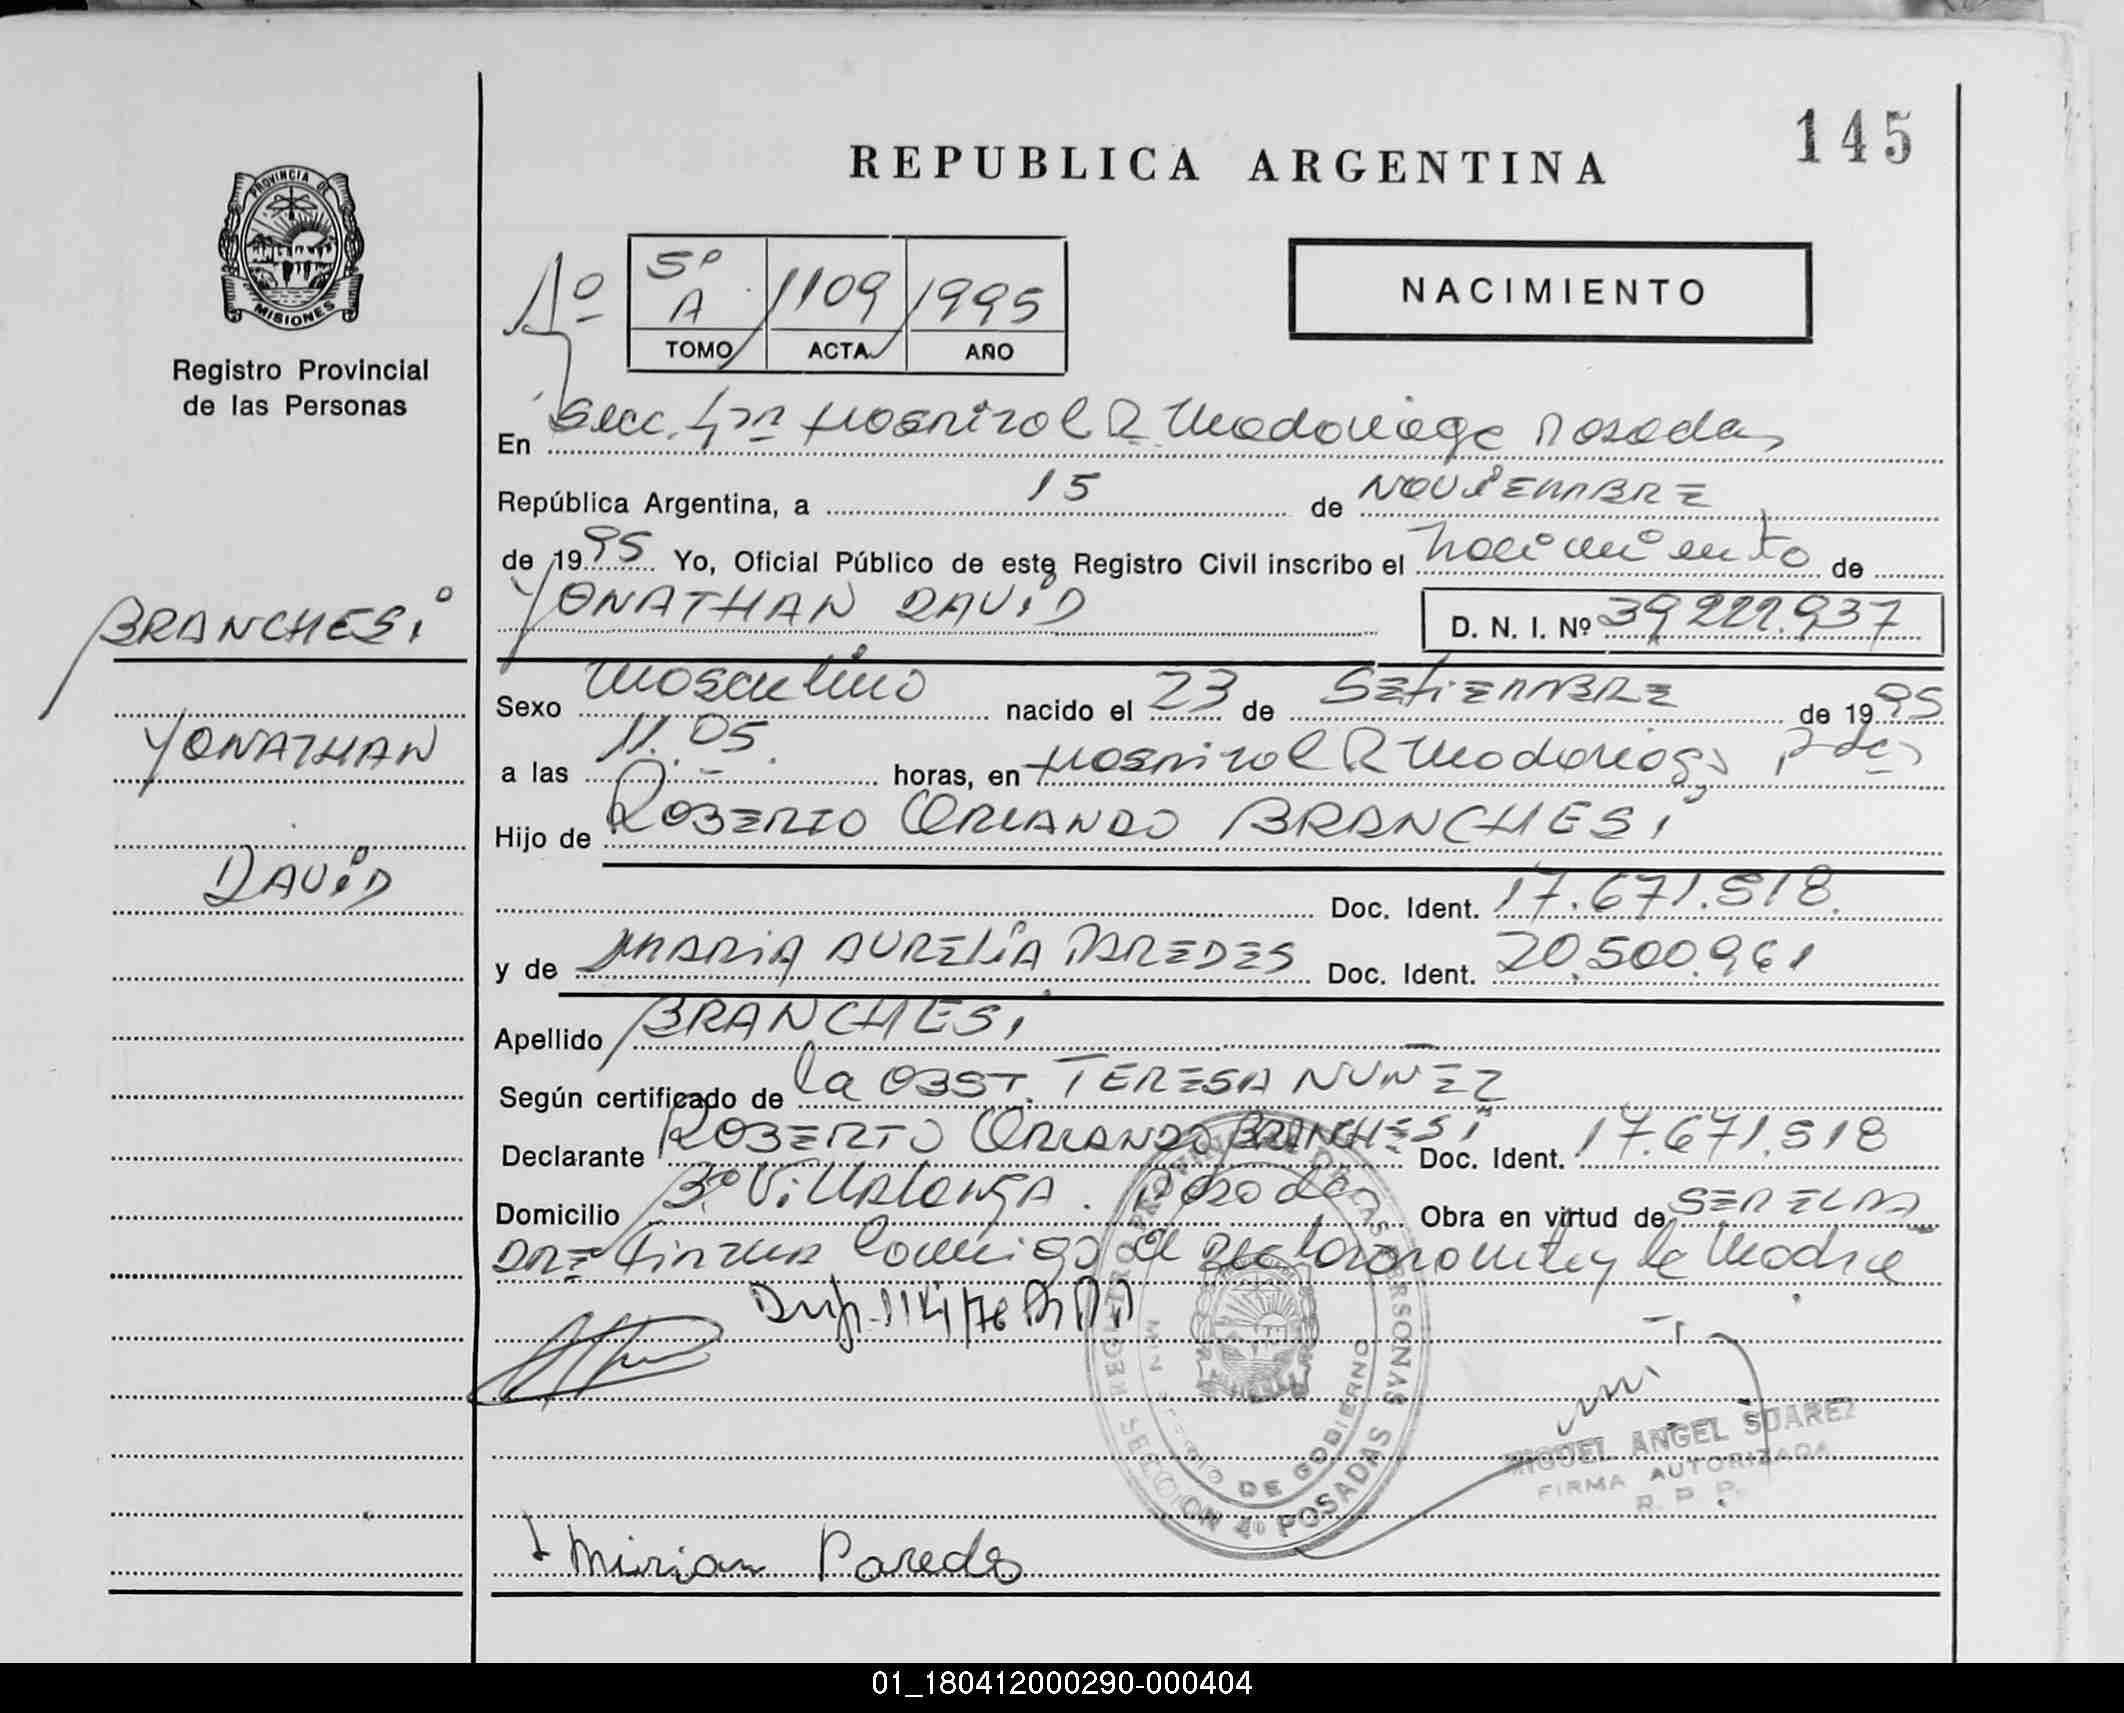 145
REPUBLICA ARGENTINA
PROVINCIA DE
MISIONES
Registro Provincial
de las Personas
Aº
5º A 1109 1995
TOMO ACTA AÑO
NACIMIENTO
En Secc. 4ta Hospital R. Madariaga Posadas
República Argentina, a 15 de NOViEMBRE
de 1995 Yo, Oficial Público de este Registro Civil inscribo el Nacimiento de
YONATHAN DAViD D. N. I. Nº 39.222.937
BRANCHESi
YONATHAN
DAViD
Sexo Masculino nacido el 23 de SETiEMBRE de 1995
a las 11.05. horas, en Hospital R Madariaga Pdas
Hijo de ROBERTO ORLANDO BRANCHESi
Doc. Ident. 17.671.518.
y de MARiA AURELiA PAREDES Doc. Ident. 20.500.961
Apellido BRANCHESi
Según certificado de la OBST. TERESA NUÑEZ
Declarante ROBERTO ORLANDO BRANCHESi Doc. Ident. 17.671.518
Domicilio Bº ViLLALONGA. Posadas Obra en virtud de SER EL PA
DRE firma conmigo el declarante y la Madre
Disp. 114/76
REGISTRO PROVINCIAL DE LAS PERSONAS
MINISTERIO DE GOBIERNO
SECCION 4º POSADAS
MIGUEL ANGEL SUAREZ
FIRMA AUTORIZADA
R. P. P.
Mirian Paredes
01_180412000290-000404